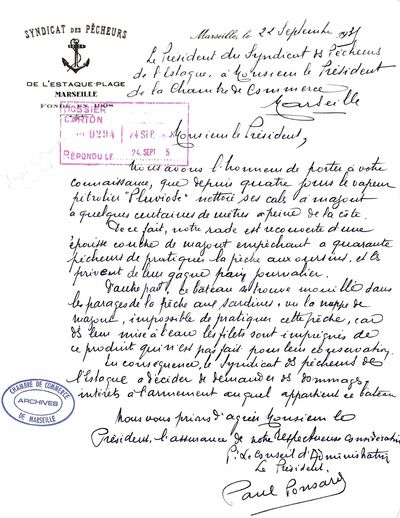 SYNDICAT DES PÊCHEURS
DE L'ESTAQUE-PLAGE
MARSEILLE
Marseille, le 22 Septembre
Le Président du Syndicat des Pêcheurs
de l'Estaque, à Monsieur le Président
de la Chambre de Commerce
Marseille
DOSSIER
CARTON
9294 24 SEP.
RÉPONDU LE 24. SEPT 5
Monsieur le Président,
Nous avons l'honneur de porter à votre
connaissance, que depuis quatre jours le vapeur
pétrolier "Pluviose" nettoie ses cals à mazout
à quelques centaines de mètres à peine de la côte.
De ce fait, notre rade est recouverte d'une
épaisse couche de mazout empêchant à quarante
pêcheurs de pratiquer la pêche aux oursins, et les
privent de leur gagne pain journalier.
D'autre part, ce bateau se trouve mouillé dans
les parages de la pêche aux sardines, vu la nappe de
mazout, impossible de pratiquer cette pêche, car
dès leur mise à l'eau les filets sont imprégnés de
ce produit qui n'est pas fait pour leur conservation.
En conséquence, le Syndicat des pêcheurs de
l'Estaque a décider de demander des dommages
intérêts à l'armement auquel appartient ce bateau
CHAMBRE DE COMMERCE
ARCHIVES
DE MARSEILLE
Nous vous prions d'agréer Monsieur le
Président, l'assurance de notre respectueuse considération
P. le Conseil d'Administration
Le Président.
Paul Ponsard